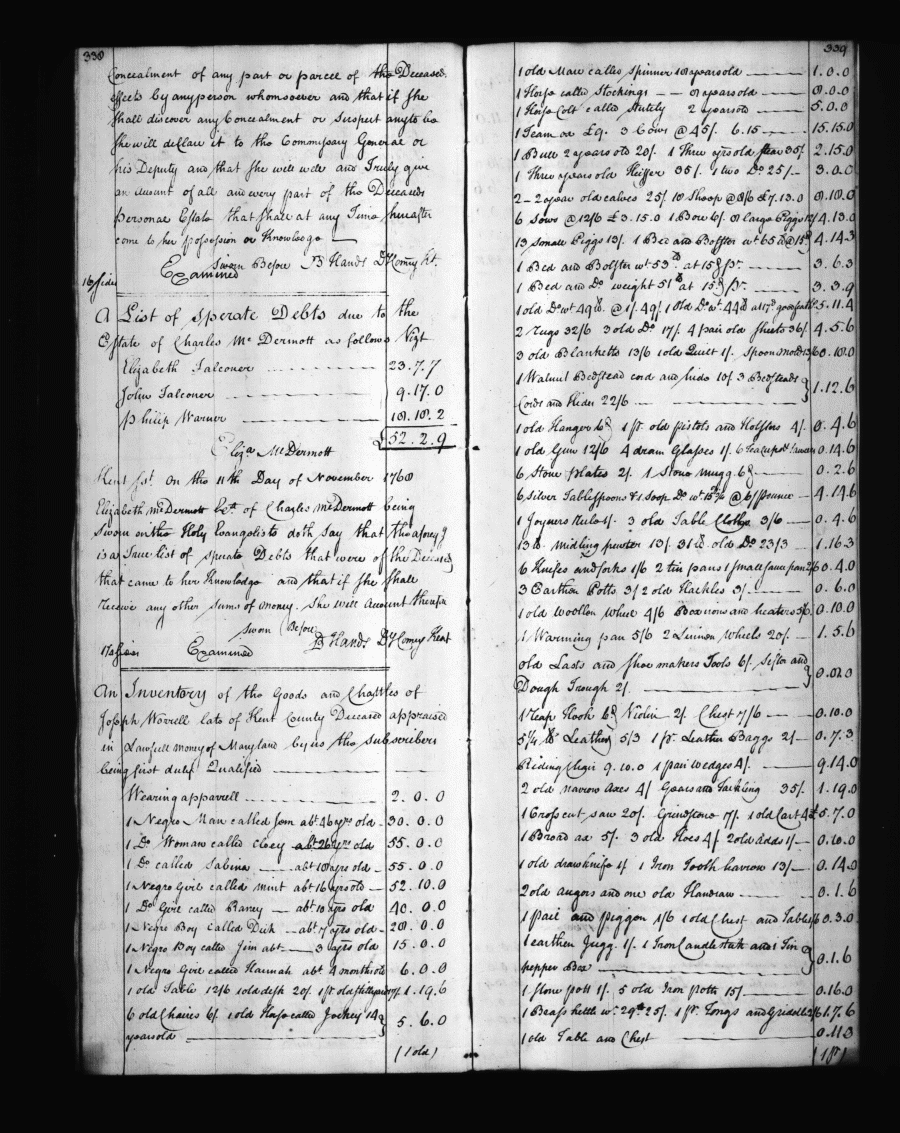 338
Concealment of any part or parcel of the Deceased
effects by any person whomsoever and that if she
shall discover any Concealment or suspect any to be
she will declare it to the Commissary General or
his Deputy and that she will well and Truly give
an account of all and every part of the Deceaseds
personal Estate that shall at any Time hereafter
come to her possession or Knowledge
Sworn Before Hands Dy Comry Kt.
Examined
16 sides
A List of Sperate Debts due to the
Estate of Charles Mc Dermott as follows Vizt
Elizabeth Falconer 23.7.7
John Falconer 9.17.0
Philip Warner 18.18.2
£52.2.9
Eliza Mc Dermott
Kent Sst. On the 11th Day of November 1760
Elizabeth McDermott of Charles McDermott being
Sworn on the Holy Evangelists doth say that the
is a True list of sperate Debts that were of the Deceased
that came to her Knowledge and that if she shall
receive any other sums of money. She will Account therefor
Sworn Before
Hands Dy Comry Kent
Examined
17 sides
An Inventory of the Goods and Chattles of
Joseph Worrell late of Kent County Deceased appraised
in Lawfull money of Maryland by us the subscribers
being first duly Qualified
Wearing apparrell 2.0.0
1 Negro Man called Jem abt. 46 yrs old 30.0.0
1 Do. Woman called Cloey abt 26 yrs old 55.0.0
1 Do. called Sabina abt 18 ayrs old 55.0.0
1 Negro Girl called mint abt 16 ayrs old 52.10.0
1 Do. Girl called abt. 10 ayrs old 40.0.0
1 Negro Boy called Dick abt. 7 ayrs old 28.0.0
1 Negro Boy called Jim abt. 3 ayrs old 15.0.0
1 Negro Girl called Hannah abt. 4 months old 6.0.0
1 old Table 12/6 1 old desk 20/. 1.19.6
6 old Chaires 6/ 1 old Horse called Jockey 14
years old 5.6.0
(1 old)
339
1 old Mare called Spinner 18 ayears old 1.0.0
1 Horse called Stockings 8 years old 8.0.0
1 Horse Colt called Stutely 2 years old 5.0.0
1 Team 3 Cows @ 45/. 6.15 15.15.0
1 Bull 2 years old 20/. 1 Three yrs old Stear 35/. 2.15.0
1 Three years old Heiffer 35/. 1 two Do 25/ 3.0.0
2 - 2 year old calves 25/. 18 Sheep @ 8/6 £7.13.0
6 Sows @ 12/6 £3.15.0 1 Boar 6/. 8 large Piggs 4.13.0
13 small Piggs 13/. 1 Bed and Bolster wt 65 4.14.3
1 Bed and Bolster wt 53 at 15 3.6.3
1 Bed and Do weight 51 at 15 3.3.9
1 old Do wt 49 @ 1/. 49/. 1 old Do wt. 44 5.11.4
2 Rugs 32/6 3 old Do 17/. 4 pair old sheets 36/. 4.5.6
3 old Blanketts 13/6 1 old Quilt 1/. Spoon molds 0.18.0
1 Walnut Bedstead cord and hide 10/. 3 Bedsteads
Cords and Hides 22/6 1.12.6
1 old Hanger 1 pr. old pistols and Holsters 4/. 0.4.6
1 old Gun 12/6 4 dram Glasses 1/. 0.14.6
6 Stone plates 2/. 1 Stone mugg 0.2.6
6 Silver Tablespoons & 1 Soop Do 4.14.6
1 Joyners Rule 1/. 3 old Table Cloths 3/6 0.4.6
13 lb midling pewter 13/. 31 lb old Do 23/3 1.16.3
6 Knifes and forks 1/6 2 tin pans 1 small 0.4.0
3 Earthen Potts 3/ 2 old Hackles 3/ 0.6.0
1 old Woollen Wheel 4/6 Box irons and heaters 5/6 0.10.0
1 Warming pan 5/6 2 Linnen Wheels 20/. 1.5.6
old Lasts and shoemakers Tools 6/. Sifter and
Dough Trough 2/.
1 Reap Hook Violin 2/. Chest 7/6 0.10.0
5 1/4 lb Leather 5/3 1 pr. Leather Baggs 2/ 0.7.3
Riding Chair 9.10.0 1 pair wedges 4/. 9.14.0
2 old narrow Axes 4/ Gears and Tackling 35/. 1.19.0
1 Cross cut saw 20/. Grindstone 7/. 1 old Cart 5.7.0
1 Broad ax 5/. 3 old Hoes 4/ 2 old Adds 1/ 0.10.0
1 old drawknife 1/ 1 Iron Tooth harrow 13/ 0.14.0
2 old augors and one old Handsaw 0.1.6
1 pail and piggon 1/6 1 old Chest and Table 0.3.0
1 earthen Jugg. 1/. 1 Iron Candlestick and 1 Tin
pepper Box 0.1.6
1 stone pott 1/. 5 old Iron potts 15/ 0.16.0
1 Brass kettle wt. 29 25/. 1 pr. Tongs and Griddle 1.7.6
1 old Table and Chest 0.11.3
(1 pr)